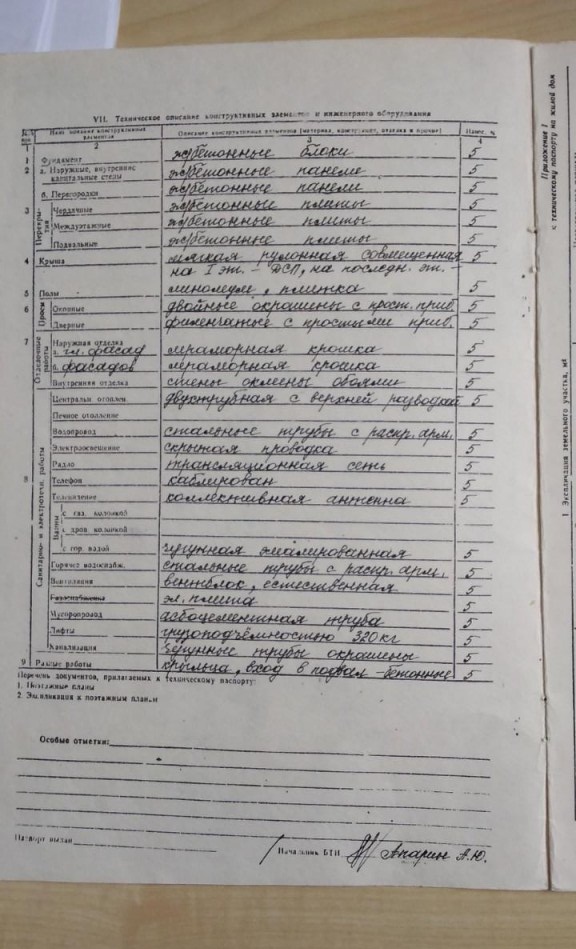 VII. Техническое описание конструктивных элементов и инженерного оборудования
Наименование конструктивных элементов
Описание конструктивных элементов (материал, конструкция, отделка и прочее)
Износ, %
1 2 3 4
1 Фундамент ж/бетонные блоки 5
2 а. Наружные, внутренние капитальные стены ж/бетонные панели 5
б. Перегородки ж/бетонные панели 5
3 Перекрытия Чердачные ж/бетонные плиты 5
Междуэтажные ж/бетонные плиты 5
Подвальные ж/бетонные плиты 5
4 Крыша мягкая рулонная совмещенная 5
на I эт. – ДСП, на последн. эт. –
5 Полы линолеум, плитка 5
6 Проемы Оконные двойные окрашены с прост. приб. 5
Дверные филенчатые с простыми приб. 5
7 Отделочные работы Наружная отделка
а. гл. фасад мраморная крошка 5
б. фасадов мраморная крошка 5
Внутренняя отделка стены оклеены обоями 5
8 Санитарно- и электротехн. работы
Центральн отоплен. двухтрубная с верхней разводкой 5
Печное отопление
Водопровод стальные трубы с раскр. арм. 5
Электроосвещение скрытая проводка 5
Радио трансляционная сеть 5
Телефон каблирован 5
Телевидение коллективная антенна 5
Ванны с газ. колонкой
с дров колонкой
с гор. водой чугунная эмалированная 5
Горячее водоснабж. стальные трубы с раскр. арм. 5
Вентиляция вентблок, естественная 5
Газоснабжение эл. плита 5
Мусоропровод асбоцементная труба 5
Лифты грузоподъёмностью 320 кг 5
Канализация чугунные трубы окрашены 5
9 Разные работы крыльца, вход в подвал – бетонные 5
Перечень документов, прилагаемых к техническому паспорту:
1. Поэтажные планы
2. Экспликация к поэтажным планам
Особые отметки:
Паспорт выдан
Начальник БТИ Апарин А.Ю.
Приложение 1
к техническому паспорту на жилой дом
1 Экспликация земельного участка, м²